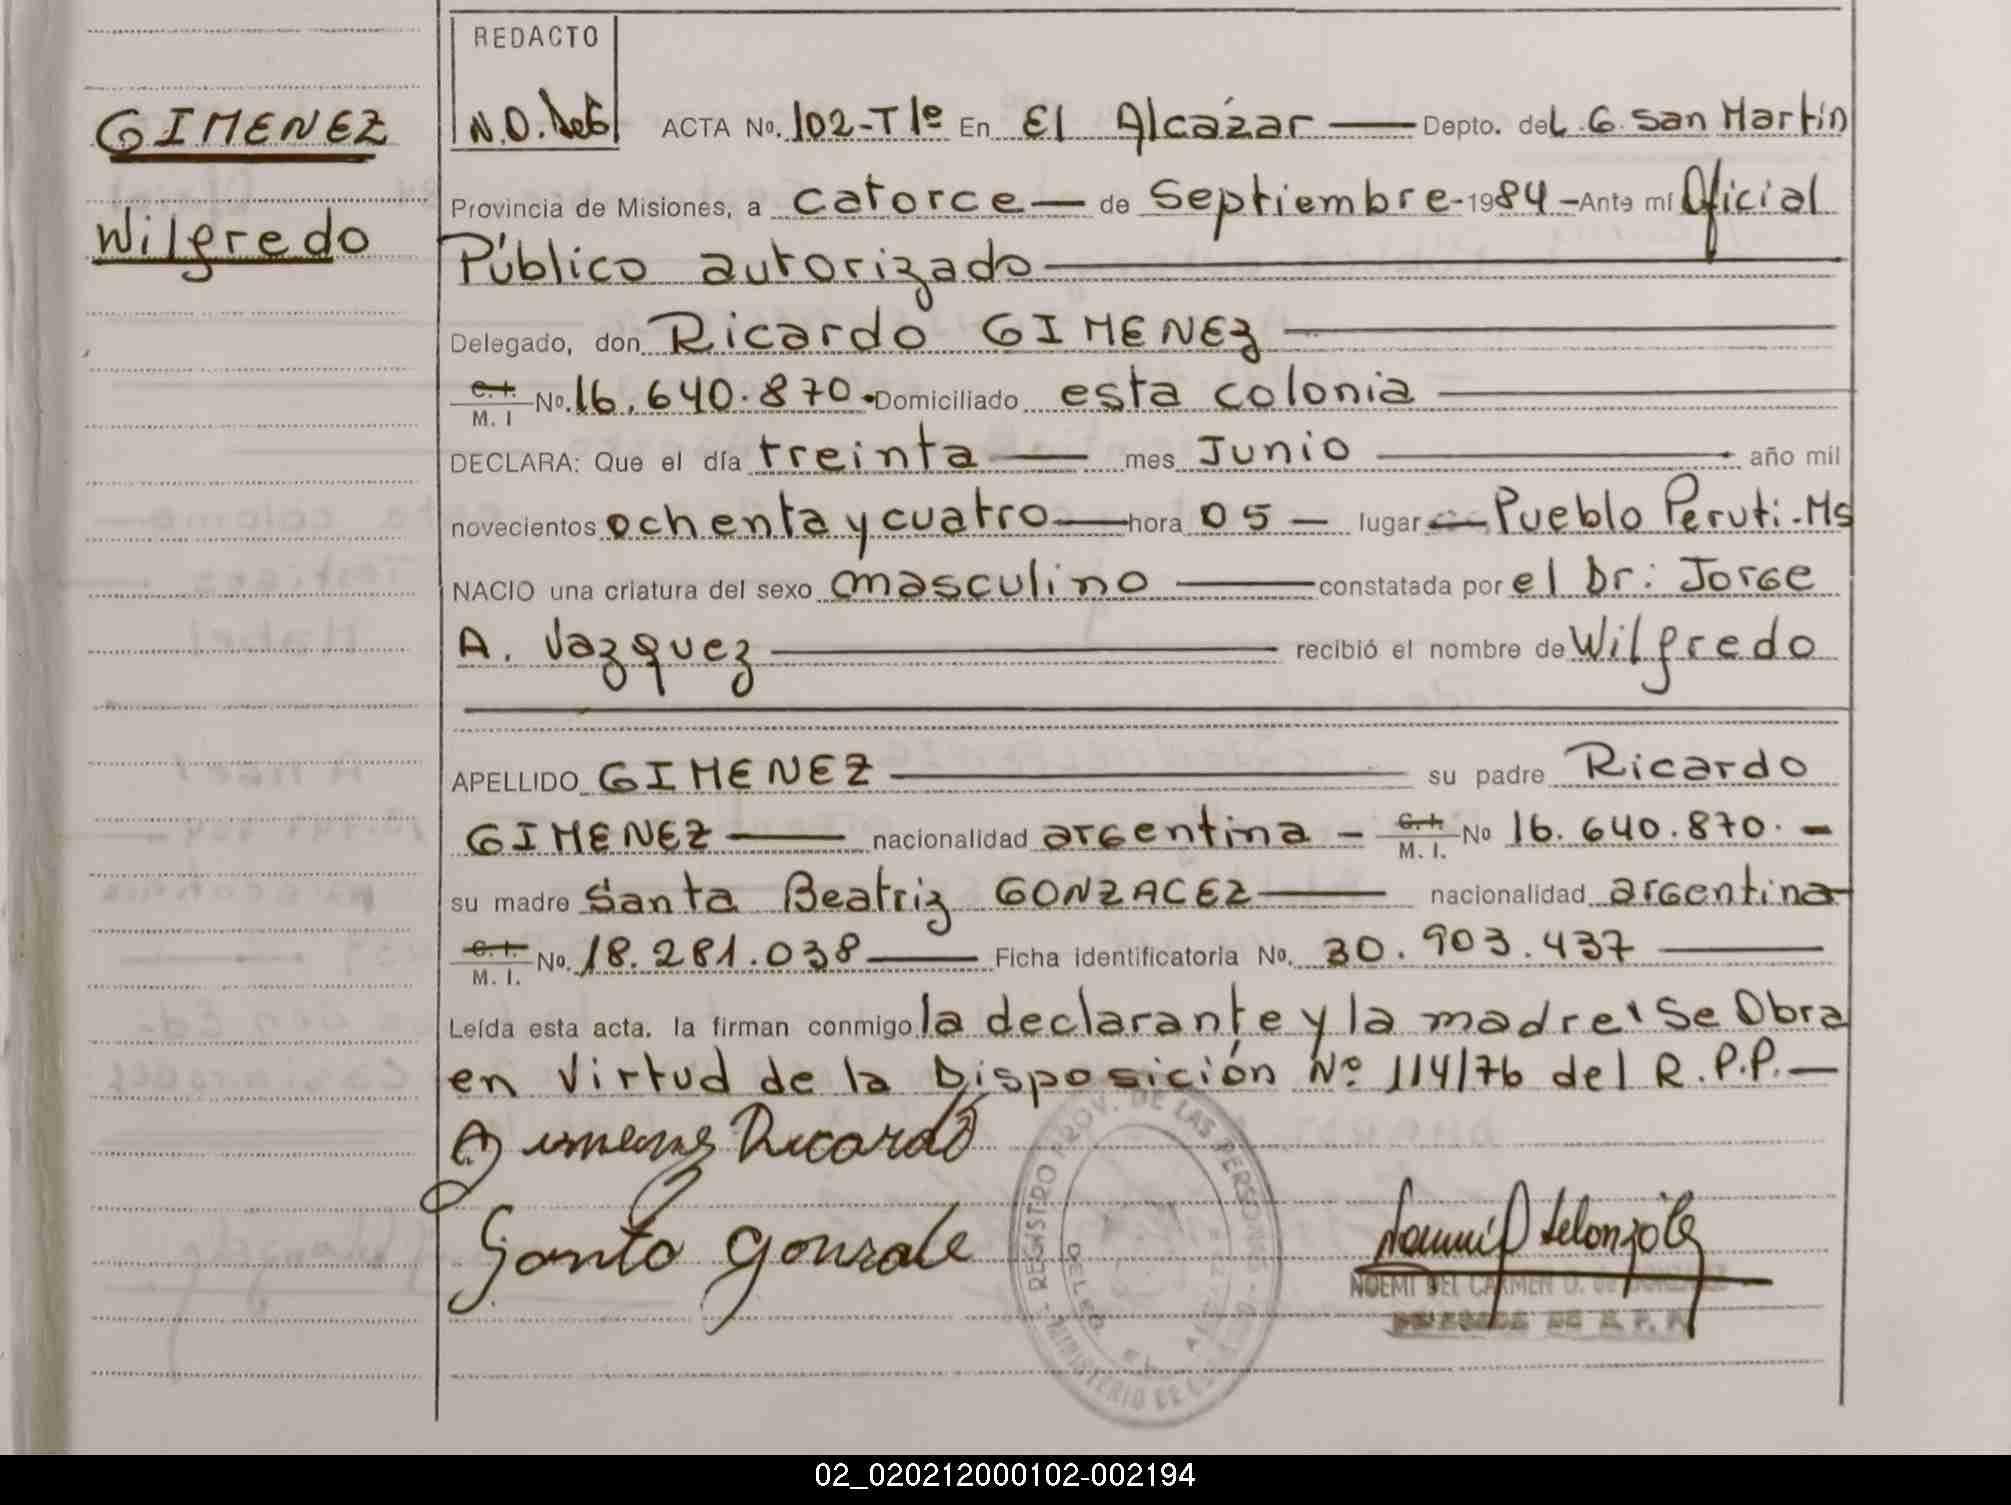 GIMENEZ
Wilfredo
REDACTO
N.D. deG
ACTA No. 102-T1º En El Alcázar — Depto. del L.G. San Martín
Provincia de Misiones, a catorce — de Septiembre - 1984 - Ante mí Oficial
Público autorizado
Delegado, don Ricardo GIMENEZ
C.I. M.I No. 16.640.870. Domiciliado esta colonia
DECLARA: Que el día treinta — mes Junio — año mil
novecientos ochenta y cuatro — hora 05 — lugar — Pueblo Peruti.-Ms
NACIO una criatura del sexo masculino — constatada por el Dr: Jorge
A. Vazquez — recibió el nombre de Wilfredo
APELLIDO GIMENEZ — su padre Ricardo
GIMENEZ — nacionalidad argentina - C.I. M.I. No 16.640.870. -
su madre Santa Beatriz GONZACEZ — nacionalidad argentina
C.I. M.I. No. 18.281.038 — Ficha identificatoria No. 30.903.437
Leída esta acta, la firman conmigo la declarante y la madre. Se Obra
en Virtud de la Disposición Nº 114/76 del R.P.P.—
Gimenez Ricardo
Santa Gonzale
REGISTRO PROV. DE LAS PERSONAS
MINISTERIO DE
NOEMI DEL CARMEN D. de GONZALEZ
DELEGADA DE R. P. P.
02_020212000102-002194